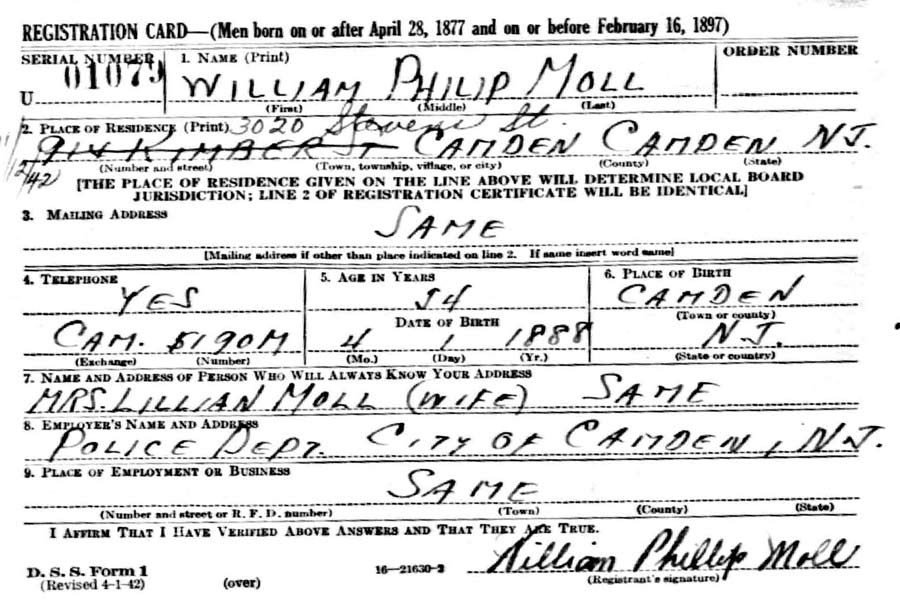 REGISTRATION CARD—(Men born on or after April 28, 1877 and on or before February 16, 1897)
SERIAL NUMBER 1. NAME (Print) ORDER NUMBER
U 01079 WILLIAM PHILIP MOLL
(First) (Middle) (Last)
2. PLACE OF RESIDENCE (Print) 3020 Stevens St.
914 KIMBER ST CAMDEN CAMDEN NJ.
(Number and street) (Town, township, village, or city) (County) (State)
[THE PLACE OF RESIDENCE GIVEN ON THE LINE ABOVE WILL DETERMINE LOCAL BOARD
JURISDICTION; LINE 2 OF REGISTRATION CERTIFICATE WILL BE IDENTICAL]
3. MAILING ADDRESS
SAME
[Mailing address if other than place indicated on line 2. If same insert word same]
4. TELEPHONE 5. AGE IN YEARS 6. PLACE OF BIRTH
YES 54 CAMDEN
DATE OF BIRTH (Town or county)
CAM. 4 1 1888 N.J.
(Exchange) (Number) (Mo.) (Day) (Yr.) (State or country)
7. NAME AND ADDRESS OF PERSON WHO WILL ALWAYS KNOW YOUR ADDRESS
MRS. LILLIAN MOLL (WIFE) SAME
8. EMPLOYER'S NAME AND ADDRESS
POLICE DEPT. CITY OF CAMDEN, NJ.
9. PLACE OF EMPLOYMENT OR BUSINESS
SAME
(Number and street or R. F. D. number) (Town) (County) (State)
I AFFIRM THAT I HAVE VERIFIED ABOVE ANSWERS AND THAT THEY ARE TRUE.
William Phillip Moll
D. S. S. Form 1 16—21630-2 (Registrant's signature)
(Revised 4-1-42) (over)